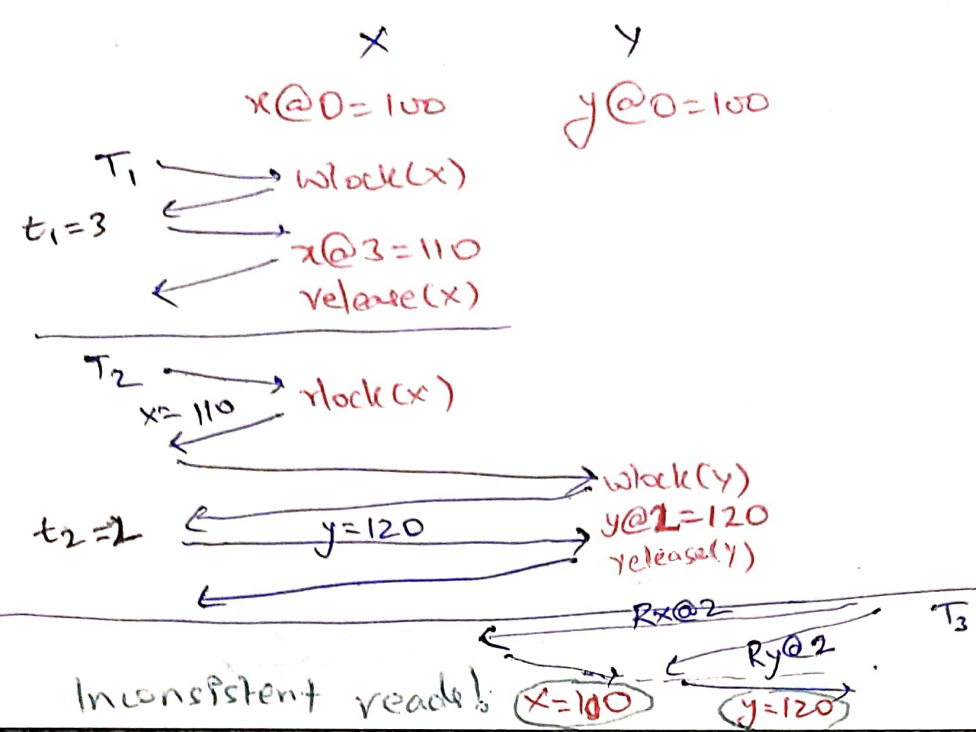 X Y
x@0=100 y@0=100
T1 wlock(x)
t1=3
x@3=110
release(x)
T2 rlock(x)
x=110
wlock(y)
t2=2 y=120 y@2=120
release(y)
Rx@2 T3
Ry@2
Inconsistent reads! x=100 y=120